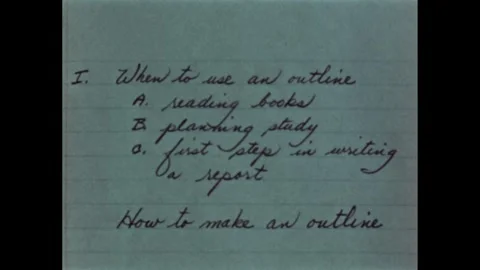 I. When to use an outline
A. reading books
B. planning study
C. first step in writing
a report
How to make an outline